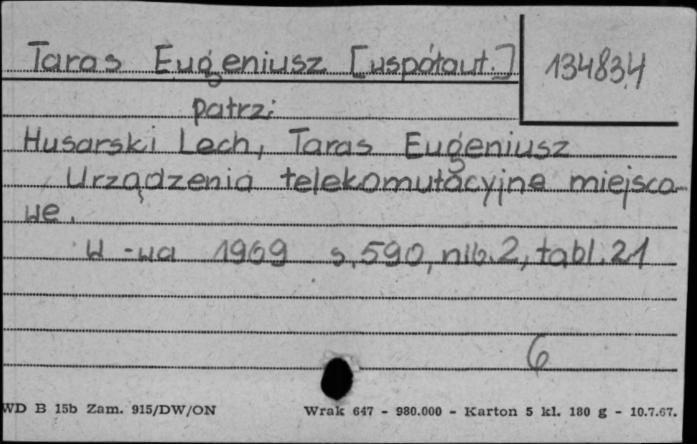 Taras Eugeniusz [współaut.] 134834
patrz:
Husarski Lech, Taras Eugeniusz
Urządzenia telekomutacyjne miejsco-
we.
W-wa 1969 s. 590, nlb. 2, tabl. 21
6
WD B 15b Zam. 915/DW/ON Wrak 647 - 980.000 - Karton 5 kl. 180 g - 10.7.67.